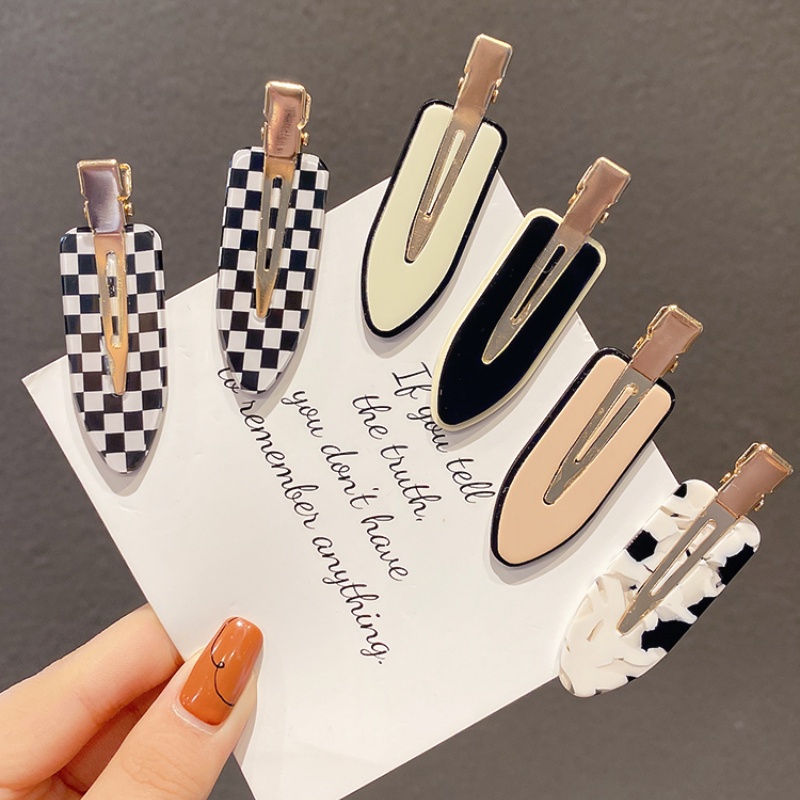 If you tell
the truth,
you don't have
to remember anything.